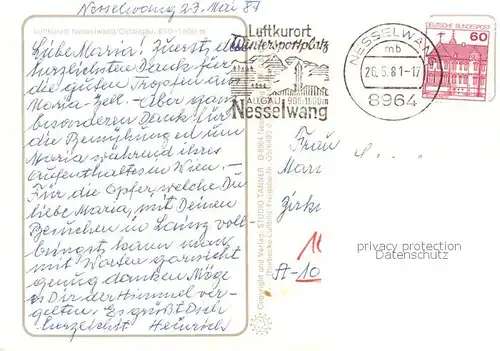 Nesselwang 23. Mai 81
Luftkurort Nesselwang/Ostallgäu, 870–1600 m
Liebe Maria! Zuerst den
herzlichsten Dank für
die guten Tropfen aus
Maria-Zell. - Aber ganz
besonderen Dank für
die Bemühungen um
Maria während ihres
Aufenthaltes in Wien. -
Für die Opfer, welche Du
liebe Maria, mit Deinen
Besuchen in Lainz voll-
bringst, kann man
mit Worten garnicht
genug danken. Möge
es Dir der Himmel ver-
gelten. Es grüßt Dich
herzlichst Heinrich
Luftkurort
Wintersportplatz
ALLGÄU 900-1600m
Nesselwang
NESSELWANG
mb
26.5.81-17
8964
DEUTSCHE BUNDESPOST
60
Copyright und Verlag: STUDIO TANNER
Frau
Mari
Zirk
A-10
privacy protection
Datenschutz